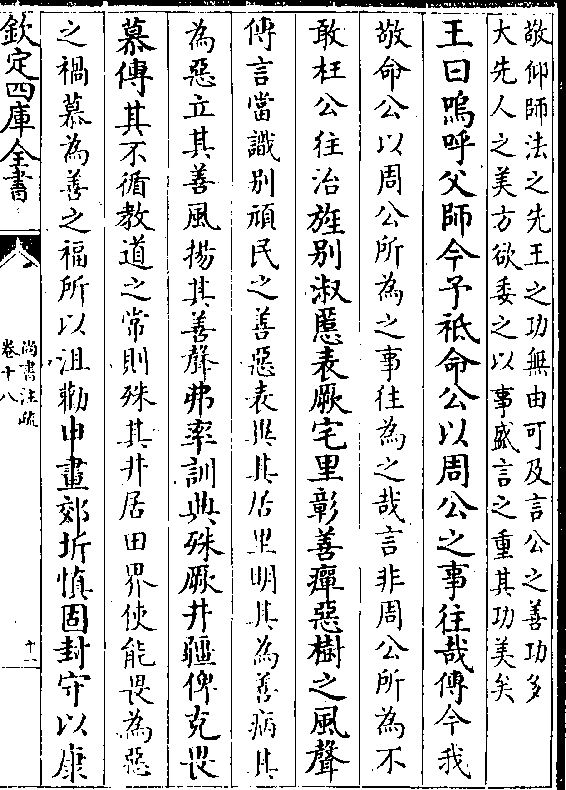 敬仰師法之先王之功無由可及言公之善功多
大先人之美方欲委之以事盛言之重其功美矣
王曰嗚呼父師今予祗命公以周公之事往哉傳今我
敬命公以周公所為之事往為之哉言非周公所為不
敢枉公往治旌别淑慝表厥宅里彰善癉惡樹之風聲
傳言當識别頑民之善惡表異其居里明其為善病其
為惡立其善風揚其善聲弗率訓典殊厥井疆俾克畏
慕傳其不循教道之常則殊其井居田界使能畏為惡
之禍慕為善之福所以沮勸申畫郊圻慎固封守以康
欽定四庫全書
尚書注疏
卷十八
十一